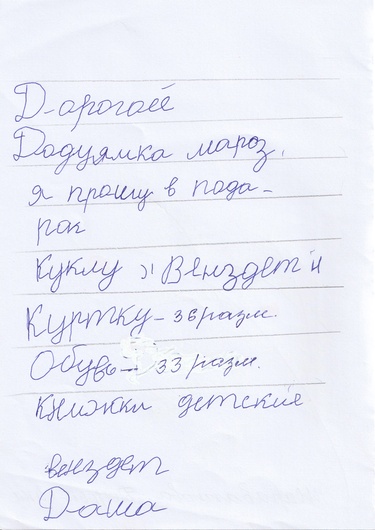 Д-арогаее
Дадуямка мароз,
я прашу в пода-
рок
Куклу "Венздет"и
Куртку - 36 разм.
Обувь - 33 разм.
Книжки детские
венздет
Даша